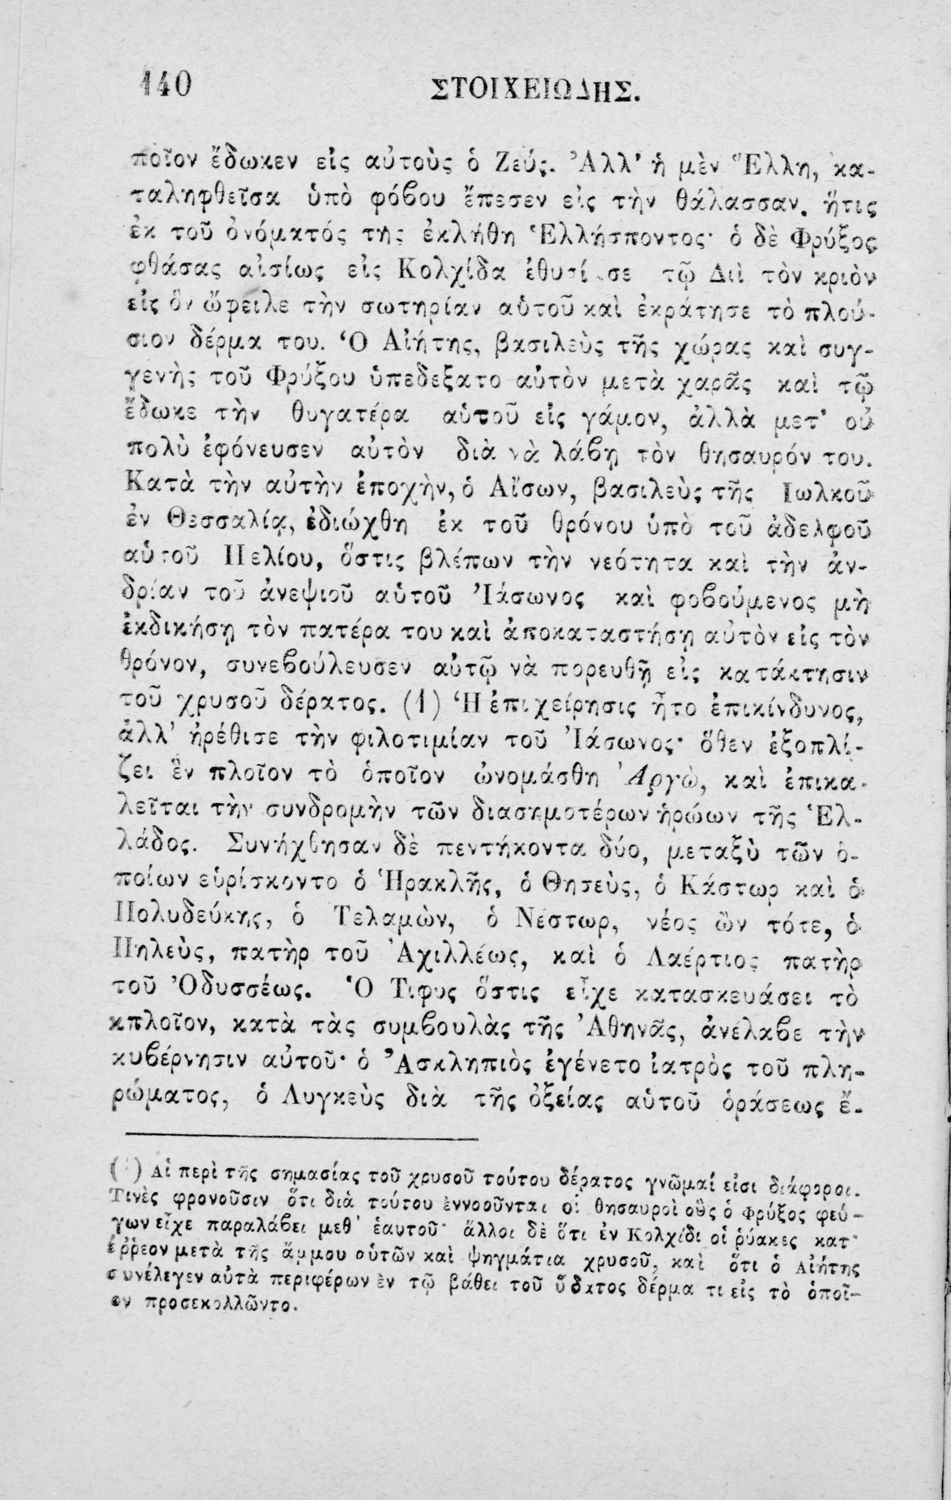 140 ΣΤΟΙΧΕΙΩΔΗΣ.
ποῖον ἔδωκεν εἰς αὐτοὺς ὁ Ζεύς. Ἀλλ' ἡ μὲν Ἕλλη, κα-
ταληφθεῖσα ὑπὸ φόβου ἔπεσεν εἰς τὴν θάλασσαν, ἥτις
ἐκ τοῦ ὀνόματός της ἐκλήθη Ἑλλήσποντος· ὁ δὲ Φρύξος
φθάσας αἰσίως εἰς Κολχίδα ἐθυσίασε τῷ Διῒ τὸν κριὸν
εἰς ὃν ὤφειλε τὴν σωτηρίαν αὑτοῦ καὶ ἐκράτησε τὸ πλού-
σιον δέρμα του. Ὁ Αἰήτης, βασιλεὺς τῆς χώρας καὶ συγ-
γενὴς τοῦ Φρύξου ὑπεδέξατο αὐτὸν μετὰ χαρᾶς καὶ τῷ
ἔδωκε τὴν θυγατέρα αὑτοῦ εἰς γάμον, ἀλλὰ μετ' οὐ
πολὺ ἐφόνευσεν αὐτὸν διὰ νὰ λάβῃ τὸν θησαυρόν του.
Κατὰ τὴν αὐτὴν ἐποχὴν, ὁ Αἴσων, βασιλεὺς τῆς Ἰωλκοῦ
ἐν Θεσσαλίᾳ, ἐδιώχθη ἐκ τοῦ θρόνου ὑπὸ τοῦ ἀδελφοῦ
αὑτοῦ Πελίου, ὅστις βλέπων τὴν νεότητα καὶ τὴν ἀν-
δρίαν τοῦ ἀνεψιοῦ αὑτοῦ Ἰάσωνος καὶ φοβούμενος μὴ
ἐκδικήσῃ τὸν πατέρα του καὶ ἀποκαταστήσῃ αὐτὸν εἰς τὸν
θρόνον, συνεβούλευσεν αὐτῷ νὰ πορευθῇ εἰς κατάκτησιν
τοῦ χρυσοῦ δέρατος. (1) Ἡ ἐπιχείρησις ἦτο ἐπικίνδυνος,
ἀλλ' ἠρέθισε τὴν φιλοτιμίαν τοῦ Ἰάσωνος· ὅθεν ἐξοπλί-
ζει ἓν πλοῖον τὸ ὁποῖον ὠνομάσθη Ἀργὼ, καὶ ἐπικα-
λεῖται τὴν συνδρομὴν τῶν διασημοτέρων ἡρώων τῆς Ἑλ-
λάδος. Συνήχθησαν δὲ πεντήκοντα δύο, μεταξὺ τῶν ὁ-
ποίων εὑρίσκοντο ὁ Ἡρακλῆς, ὁ Θησεὺς, ὁ Κάστωρ καὶ ὁ
Πολυδεύκης, ὁ Τελαμὼν, ὁ Νέστωρ, νέος ὢν τότε, ὁ
Πηλεὺς, πατὴρ τοῦ Ἀχιλλέως, καὶ ὁ Λαέρτιος πατὴρ
τοῦ Ὀδυσσέως. Ὁ Τιφυς ὅστις εἶχε κατασκευάσει τὸ
κπλοῖον, κατὰ τὰς συμβουλὰς τῆς Ἀθηνᾶς, ἀνέλαβε τὴν
κυβέρνησιν αὐτοῦ· ὁ Ἀσκληπιὸς ἐγένετο ἰατρὸς τοῦ πλη-
ρώματος, ὁ Λυγκεὺς διὰ τῆς ὀξείας αὑτοῦ ὁράσεως ἔ-
(1) Αἱ περὶ τῆς σημασίας τοῦ χρυσοῦ τούτου δέρατος γνῶμαί εἰσι διάφοροι.
Τινὲς φρονοῦσιν ὅτι διὰ τούτου ἐννοοῦνται οἱ θησαυροὶ οὓς ὁ Φρύξος φεύ-
γων εἶχε παραλάβει μεθ' ἑαυτοῦ· ἄλλοι δὲ ὅτι ἐν Κολχίδι οἱ ῥύακες κατ-
έῤῥεον μετὰ τῆς ἄμμου αὐτῶν καὶ ψηγμάτια χρυσοῦ, καὶ ὅτι ὁ Αἰήτης
συνέλεγεν αὐτὰ περιφέρων ἐν τῷ βάθει τοῦ ὕδατος δέρμα τι εἰς τὸ ὁποῖ-
ον προσεκολλῶντο.